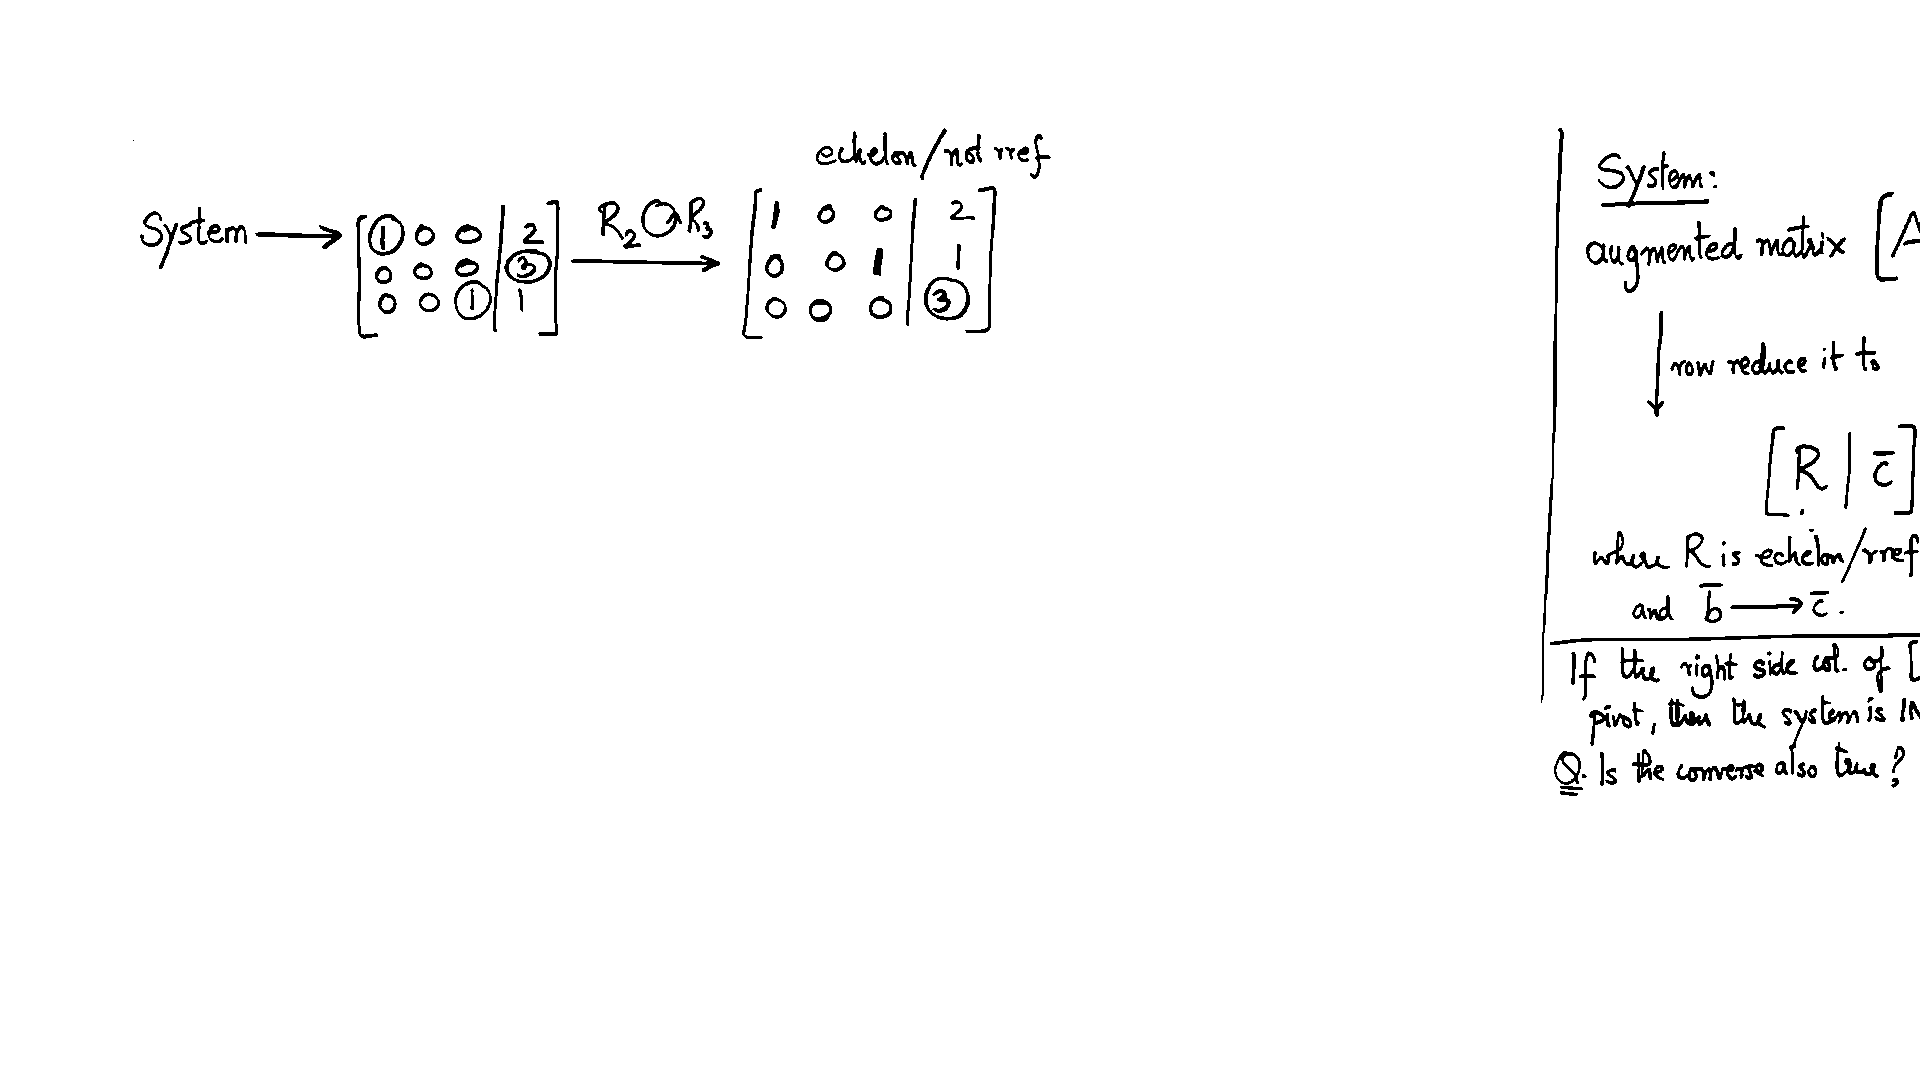 echelon/not rref
System → [ 1 0 0 | 2 ] R₂ ↔ R₃ → [ 1 0 0 | 2 ]
[ 0 0 0 | 3 ] [ 0 0 1 | 1 ]
[ 0 0 1 | 1 ] [ 0 0 0 | 3 ]
System:
augmented matrix [A
↓ row reduce it to
[R | c̄]
where R is echelon/rref
and b̄ → c̄.
If the right side col. of [
pivot, then the system is IN
Q. Is the converse also true?